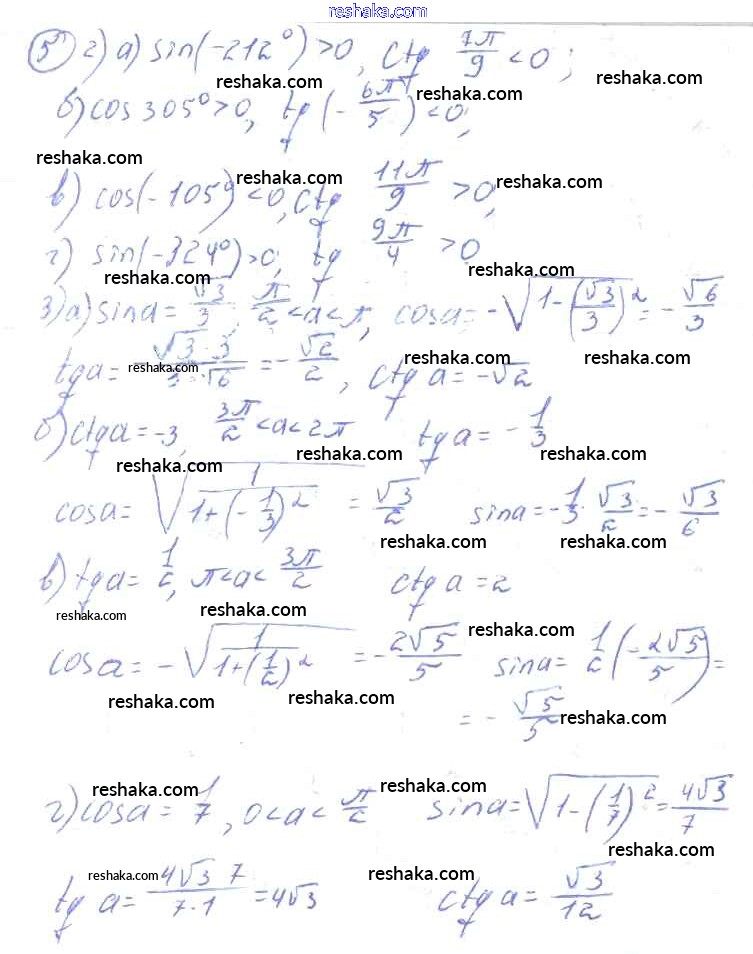 reshaka.com
5 2) а) sin(-212°) > 0, ctg 7π/9 < 0;
reshaka.com reshaka.com reshaka.com
б) cos 305° > 0, tg (-6π/5) < 0;
reshaka.com reshaka.com reshaka.com
в) cos(-105°) < 0, ctg 11π/9 > 0,
г) sin(-324°) > 0; tg 9π/4 > 0
reshaka.com reshaka.com
3) а) sin a = √3/3; π/2 < a < π, cos a = -√(1-(√3/3)²) = -√6/3
reshaka.com reshaka.com reshaka.com
tg a = √3·3/3·√6 = -√2/2, ctg a = -√2
б) ctg a = -3, 3π/2 < a < 2π tg a = -1/3
reshaka.com reshaka.com reshaka.com
cos a = √(1/(1+(-1/3)²)) = √3/2 sin a = -1/3·√3/2 = -√3/6
reshaka.com reshaka.com reshaka.com
в) tg a = 1/2, π < a < 3π/2 ctg a = 2
reshaka.com reshaka.com reshaka.com
cos a = -√(1/(1+(1/2)²)) = -2√5/5 sin a = 1/2(-2√5/5) =
reshaka.com reshaka.com
= -√5/5
reshaka.com
reshaka.com reshaka.com
г) cos a = 1/7, 0 < a < π/2 sin a = √(1-(1/7)²) = 4√3/7
reshaka.com reshaka.com reshaka.com
tg a = 4√3 7/7·1 = 4√3 ctg a = √3/12